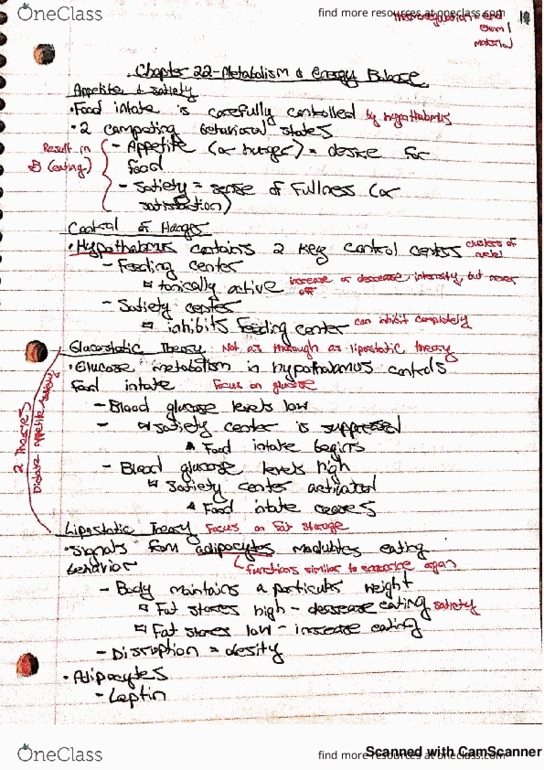 OneClass
find more resources at oneclass.com
exam 1
material
Chapter 22 - Metabolism & Energy Balance
Appetite & Satiety
• Food intake is carefully controlled by hypothalamus
• 2 competing behavioral states
Result in
(eating)
- Appetite (or hunger) = desire for
food
- Satiety = sense of fullness (or
satisfaction)
Control of Hunger
• Hypothalamus contains 2 key control centers clusters of
- Feeding center
tonically active increase or decrease intensity, but never
off
- Satiety center
inhibits feeding center can inhibit completely
Glucostatic Theory Not as thorough as lipostatic theory
• Glucose metabolism in hypothalamus controls
food intake Focus on glucose
2 Theories
Dictate appetite/satiety
- Blood glucose levels low
- Satiety center is suppressed
Food intake begins
- Blood glucose levels high
Satiety center activated
Food intake ceases
Lipostatic Theory Focus on fat storage
• Signals from adipocytes modulates eating
behavior
functions similar to endocrine organ
- Body maintains a particular weight
Fat stores high - decrease eating satiety
Fat stores low - increase eating
- Disruption = obesity
• Adipocytes
- Leptin
OneClass
find more resources at oneclass.com
Scanned with CamScanner